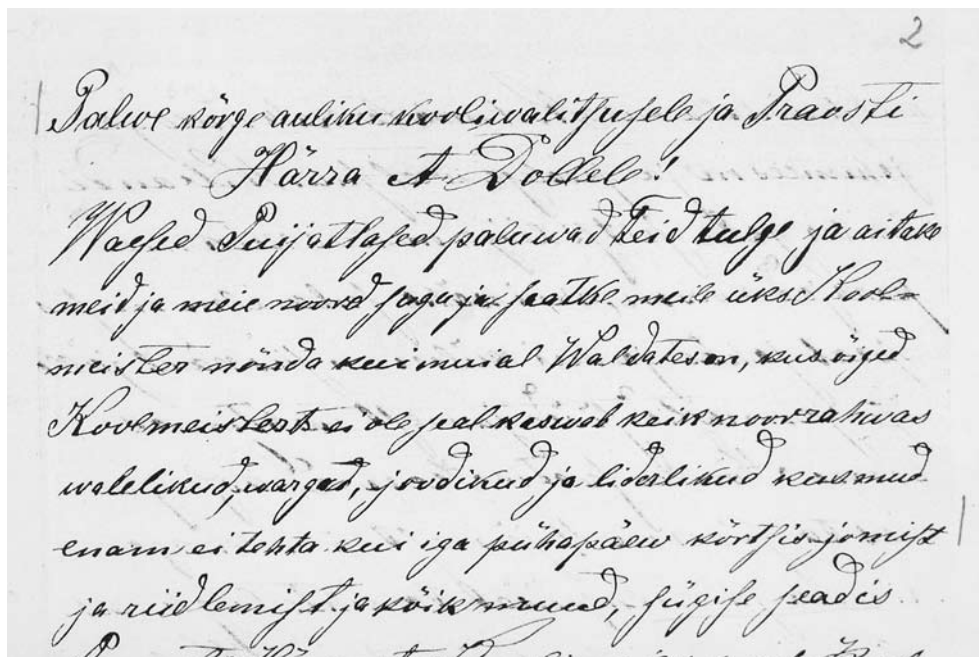 2
Palwe kõrge auliku kooliwalitsusele ja Praosti
Härra A Dollele!
Waesed Puijatlased paluwad Teid tulge ja aitake
meid ja meie noord sugu ja saatke meile üks Kool-
meister nõnda kui muial Waldates on, kus õiged
Koolmeistert ei ole seal kaswab keik noorrahwas
walelikud, wargad, joodikud, ja liderlikud kus mud
enam ei tehta kui iga pühapäew kõrtsis jomist
ja riidlemist ja kõik muud, sügise seadis